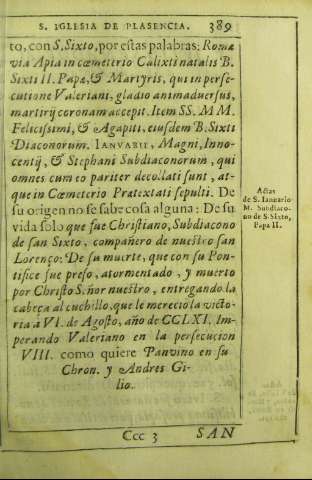 S. IGLESIA DE PLASENCIA. 389
to, con S. Sixto, por estas palabras: Romæ
via Apia in cœmeterio Calixti natalis B.
Sixti II. Papæ, & Martyris, qui in perse-
cutione Valeriani, gladio animaduersus,
martirij coronam accepit. Item SS. M M.
Felicissimi, & Agapiti, eiusdem B. Sixti
Diaconorum. IANVARII, Magni, Inno-
centij, & Stephani Subdiaconorum, qui
omnes cum eo pariter decollati sunt, at-
que in Cœmeterio Pratextati sepulti. De
su origen no se sabe cosa alguna: De su
vida solo que fue Christiano, Subdiacono
de san Sixto, compañero de nuestro san
Lorenço: De su muerte, que con su Pon-
tifice fue preso, atormentado, y muerto
por Christo S. ñor nuestro, entregando la
cabeça al cuchillo, que le merecio la victo-
ria à VI. de Agosto, año de CCLXI. Im-
perando Valeriano en la persecucion
VIII. como quiere Panvino en su
Chron. y Andres Gi-
lio.
Actas
de S. Ianuario
M. Subdiaco-
no de S. Sixto,
Papa II.
Ccc 3 SAN